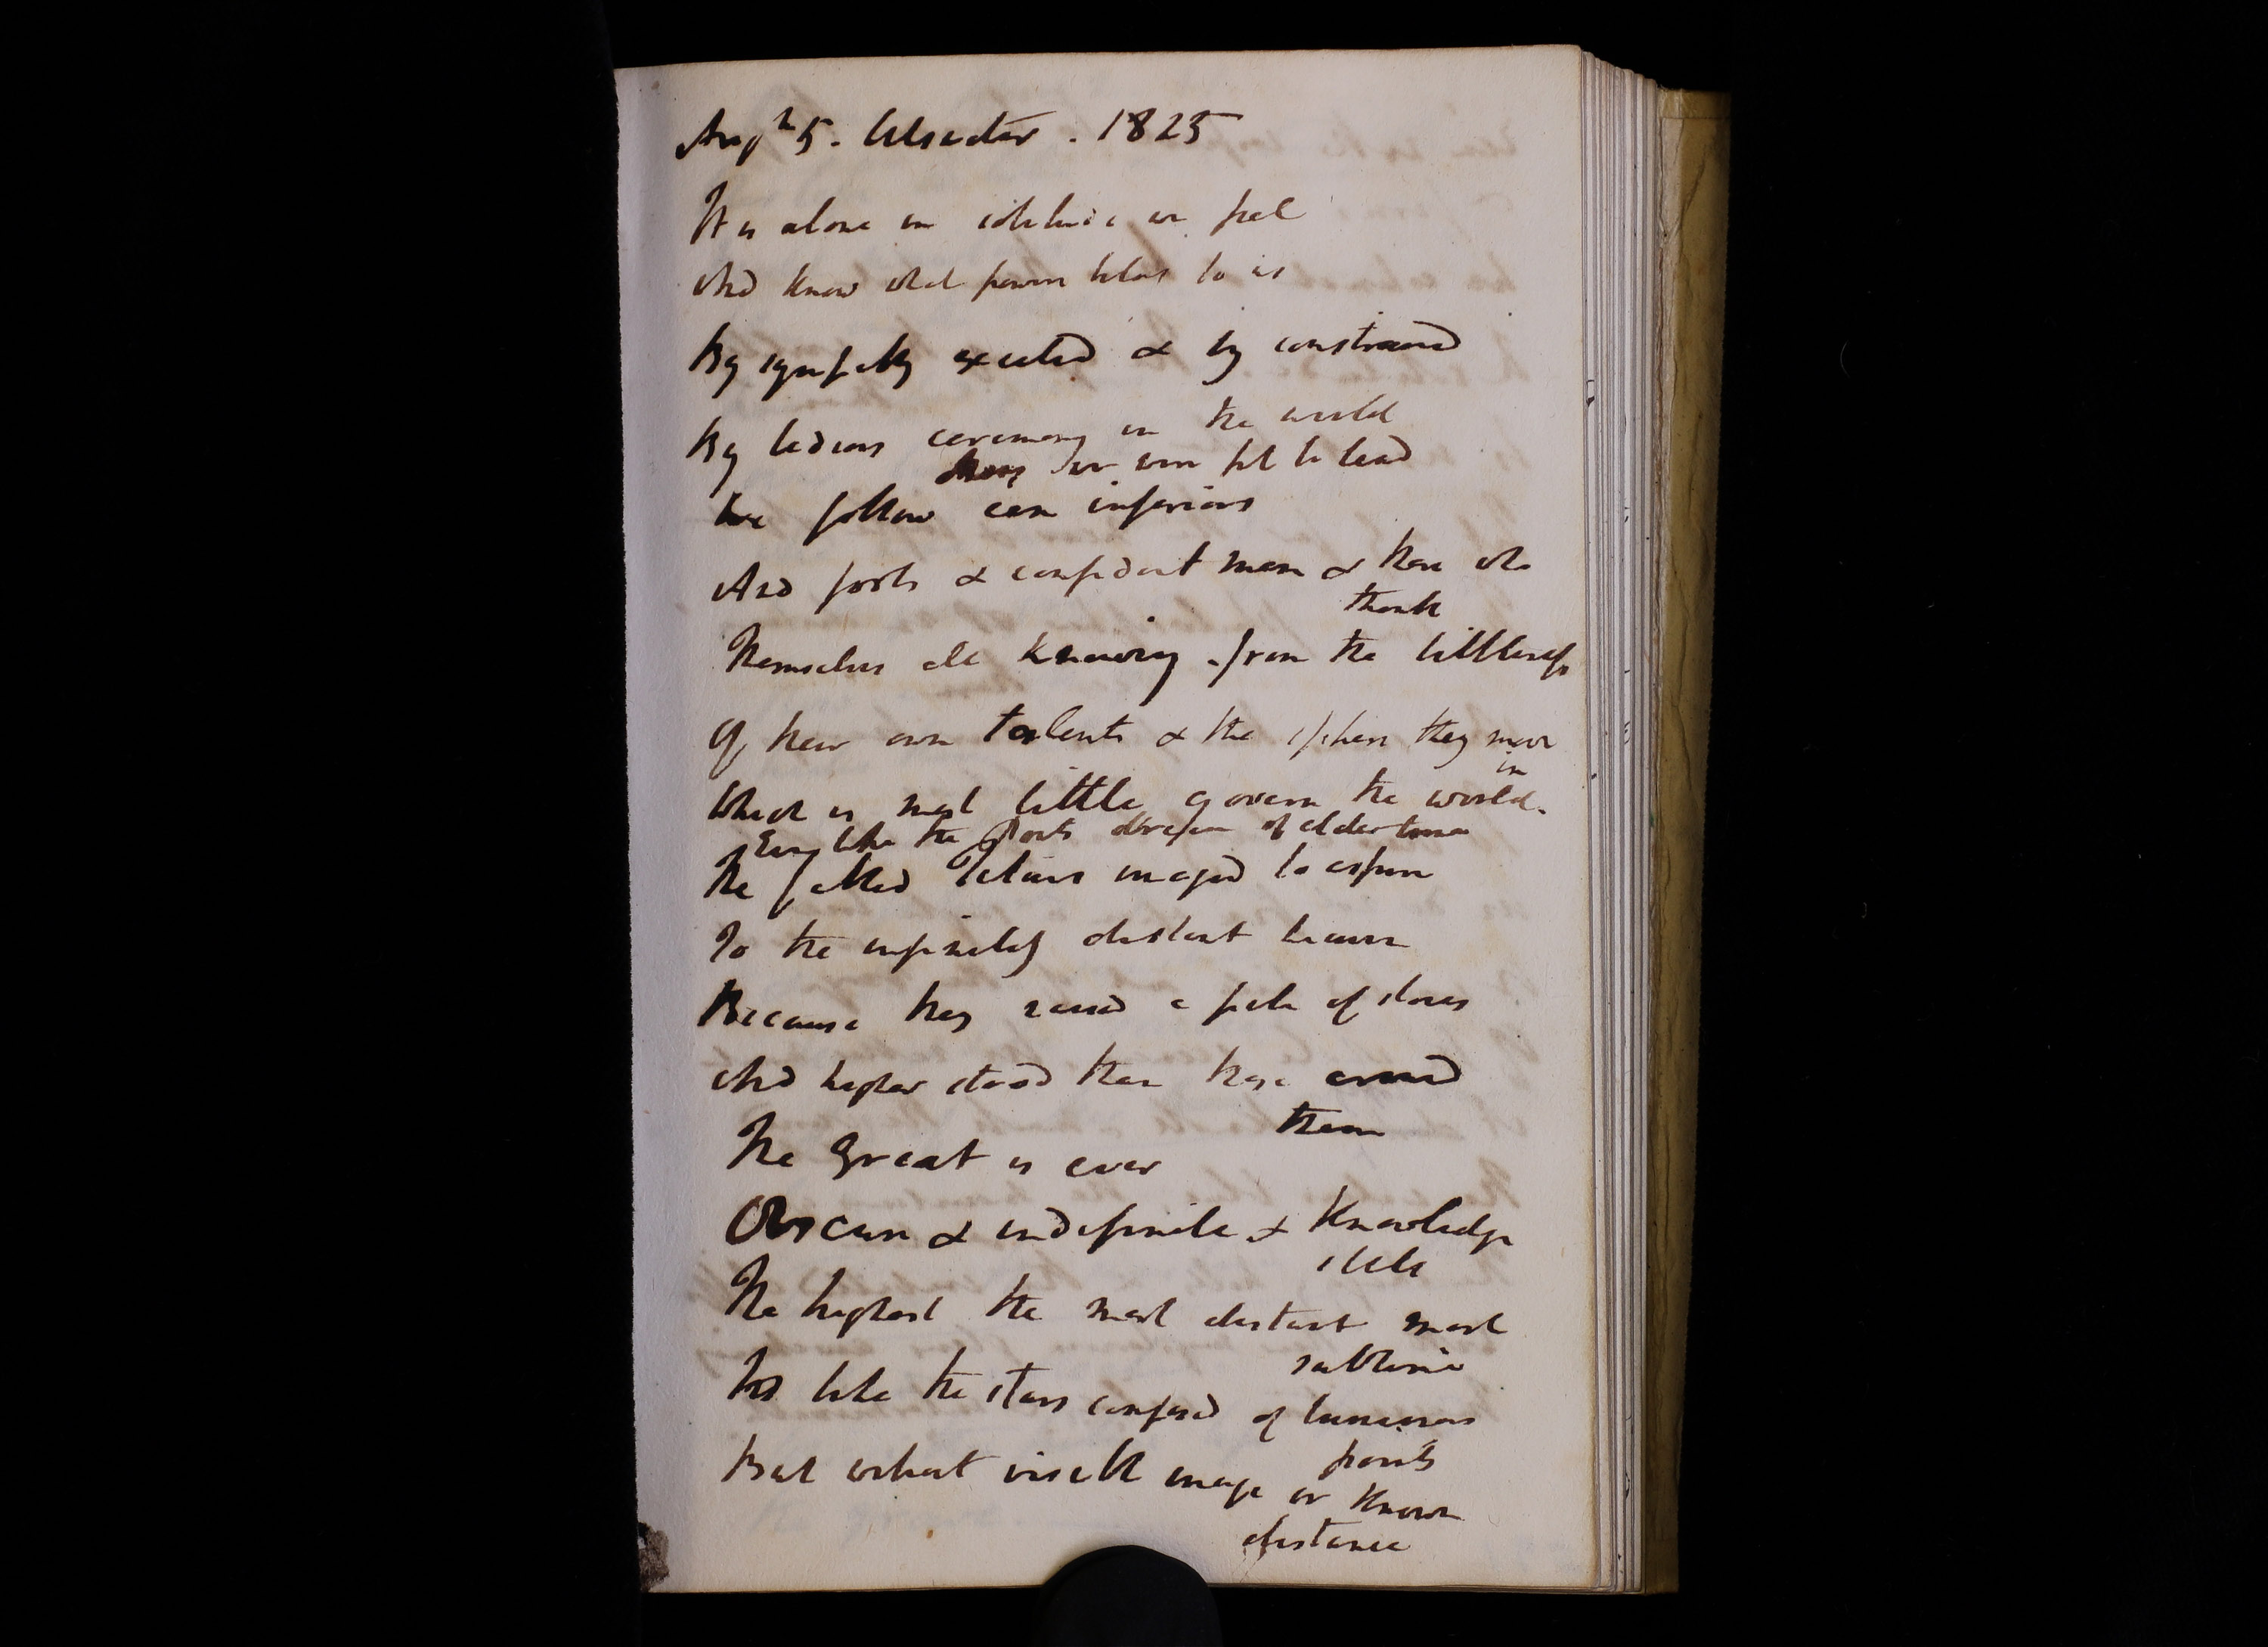 Augst 5. Ulswater. 1825
It is alone in solitude we feel
And know what powers belong to us
By sympathy excited & by constrained
By tedious ceremony in the world
those we were fit to lead
We follow een inferiors
And fools & confident men & those who
think
Themselves all knowing from the littleness
Of their own talents & the sphere they move
in
Which is most little govern the world.
Even like the Poets dream of elder time
The fabled Titans imaged to aspire
To the infinitely distant heaven
Because they raised a pile of stones
And higher stood than those around
them
The Great is ever
Obscure & indefinite & knowledge
still
The highest the most distant most
sublime
Is like the stars composed of luminous
points
But without visible image or known
distance